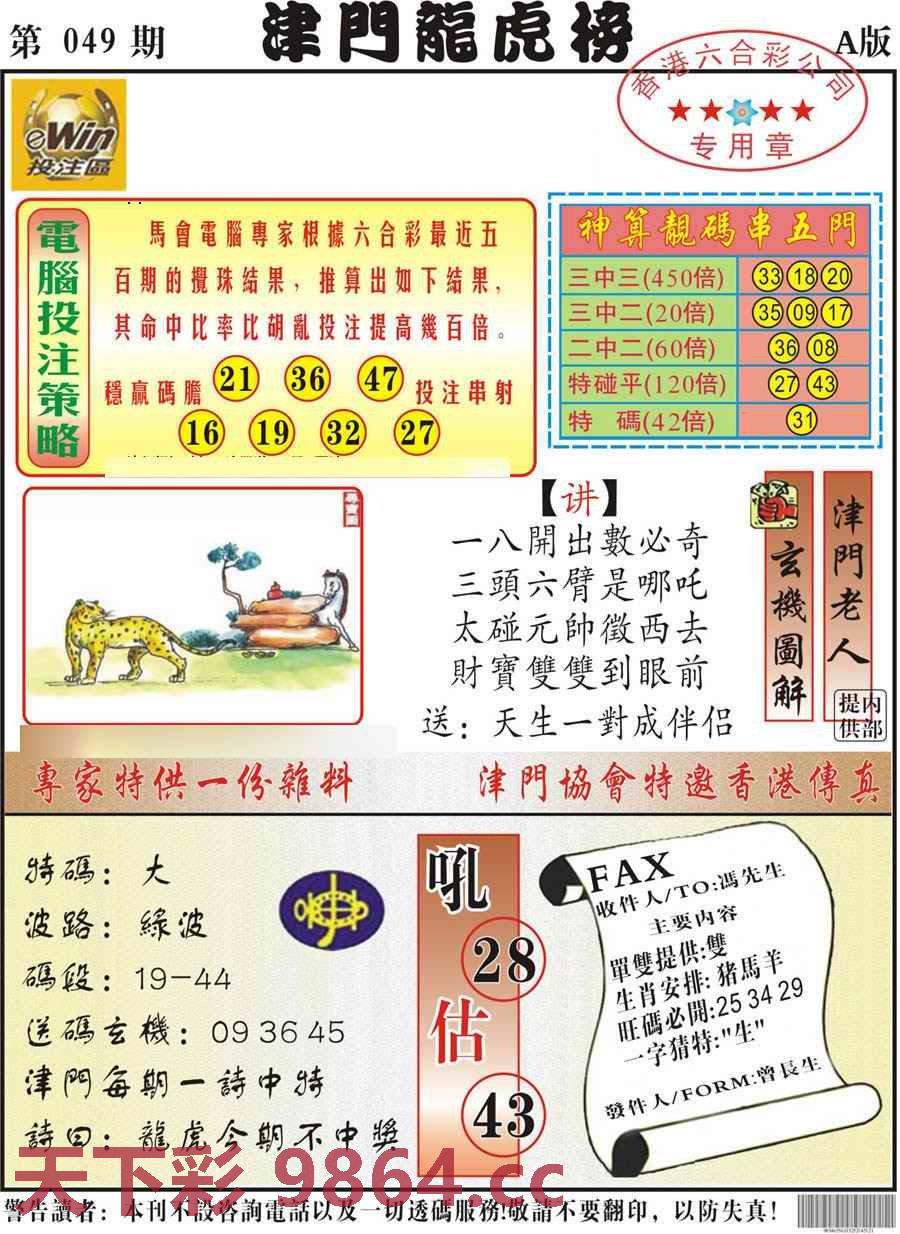 第 049 期
津門龍虎榜
A版
香港六合彩公司
专用章
eWin
投注區
電腦投注策略
馬會電腦專家根據六合彩最近五
百期的攪珠結果，推算出如下結果，
其命中比率比胡亂投注提高幾百倍。
穩贏碼膽 21 36 47 投注串射
16 19 32 27
神算靚碼串五門
三中三(450倍) 33 18 20
三中二(20倍) 35 09 17
二中二(60倍) 36 08
特碰平(120倍) 27 43
特 碼(42倍) 31
【讲】
一八開出數必奇
三頭六臂是哪吒
太碰元帥徵西去
財寶雙雙到眼前
送：天生一對成伴侣
玄機圖解
津門老人
内部提供
專家特供一份雜料
津門協會特邀香港傳真
特碼：大
波路：綠波
碼段：19-44
送碼玄機：09 36 45
津門每期一詩中特
詩曰：龍虎今期不中獎
吼
28
估
43
FAX
收件人/TO:馮先生
主要内容
單雙提供:雙
生肖安排:猪馬羊
旺碼必開:25 34 29
一字猜特:"生"
發件人/FORM:曾長生
天下彩 9864.cc
警告讀者：本刊不設咨詢電話以及一切透碼服務!敬請不要翻印，以防失真！